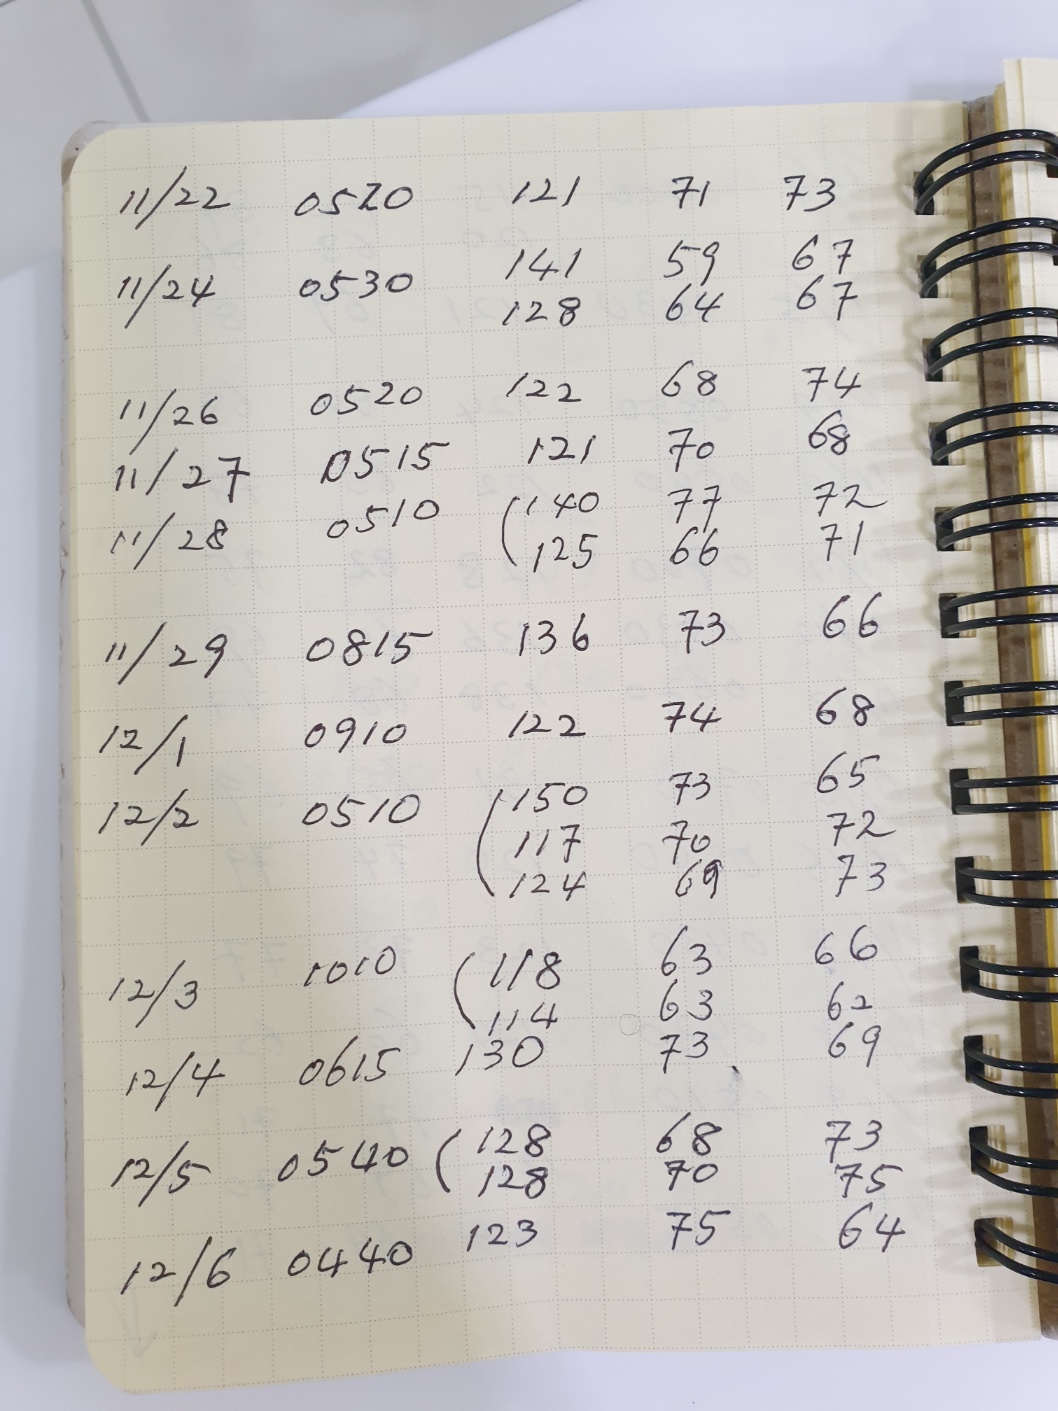 11/22 0520 121 71 73
11/24 0530 141 59 67
128 64 67
11/26 0520 122 68 74
11/27 0515 121 70 68
11/28 0510 (140 77 72
125 66 71
11/29 0815 136 73 66
12/1 0910 122 74 68
12/2 0510 (150 73 65
117 70 72
124 69 73
12/3 1010 (118 63 66
114 63 62
12/4 0615 130 73 69
12/5 0540 (128 68 73
128 70 75
12/6 0440 123 75 64